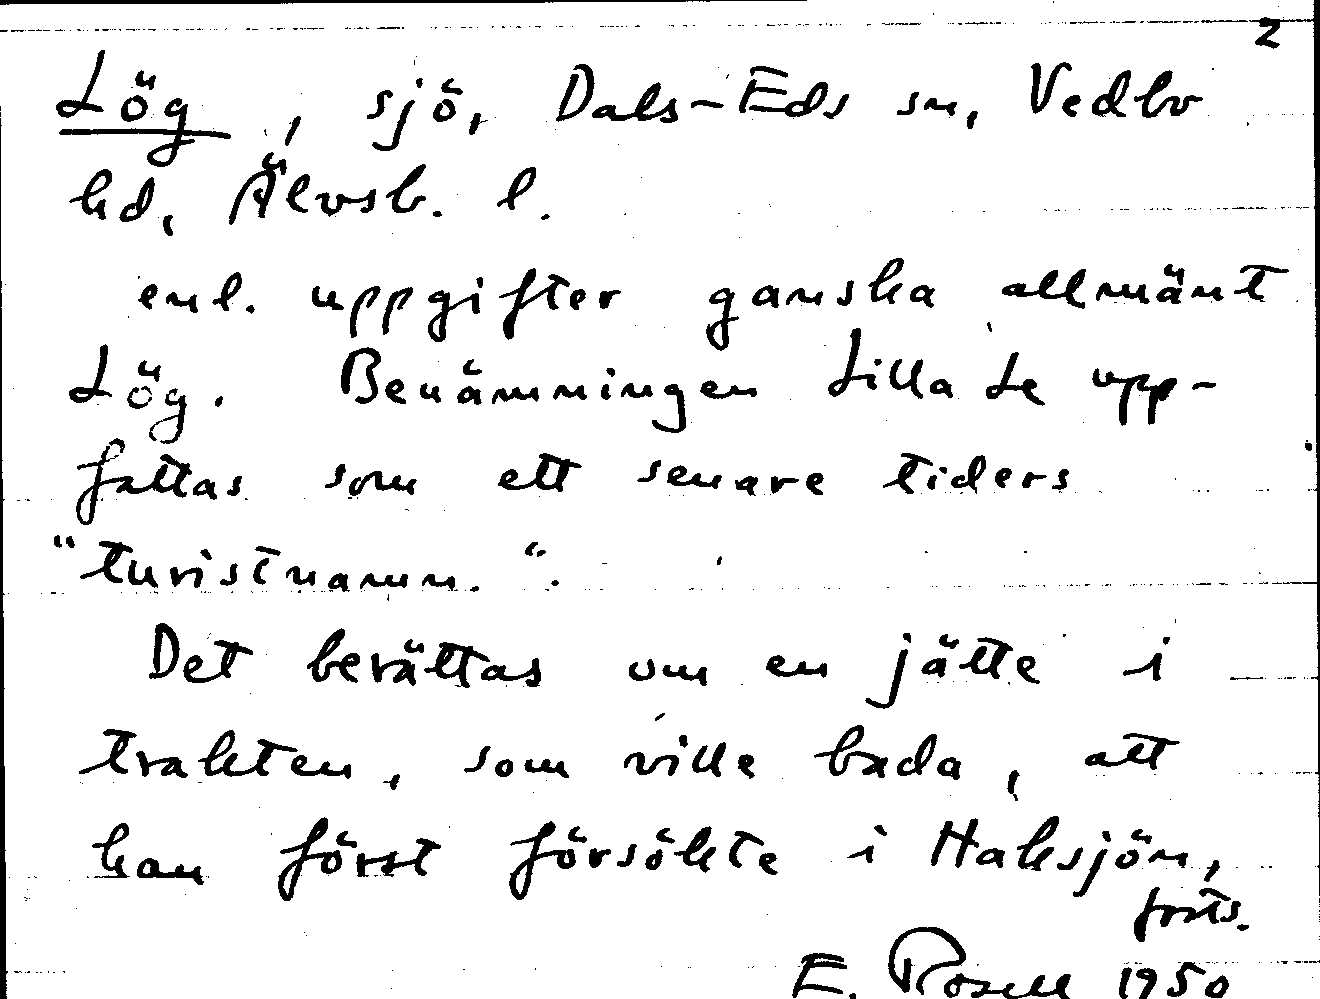 2
Lög, sjö, Dals-Eds sn, Vedbo
hd, Älvsb. l.
enl. uppgifter ganska allmänt
Lög. Benämningen Lilla Le upp-
fattas som ett senare tiders
"turistnamn.".
Det berättas om en jätte i
trakten, som ville bada, att
han först försökte i Haksjön,
forts.
E. Rosell 1950